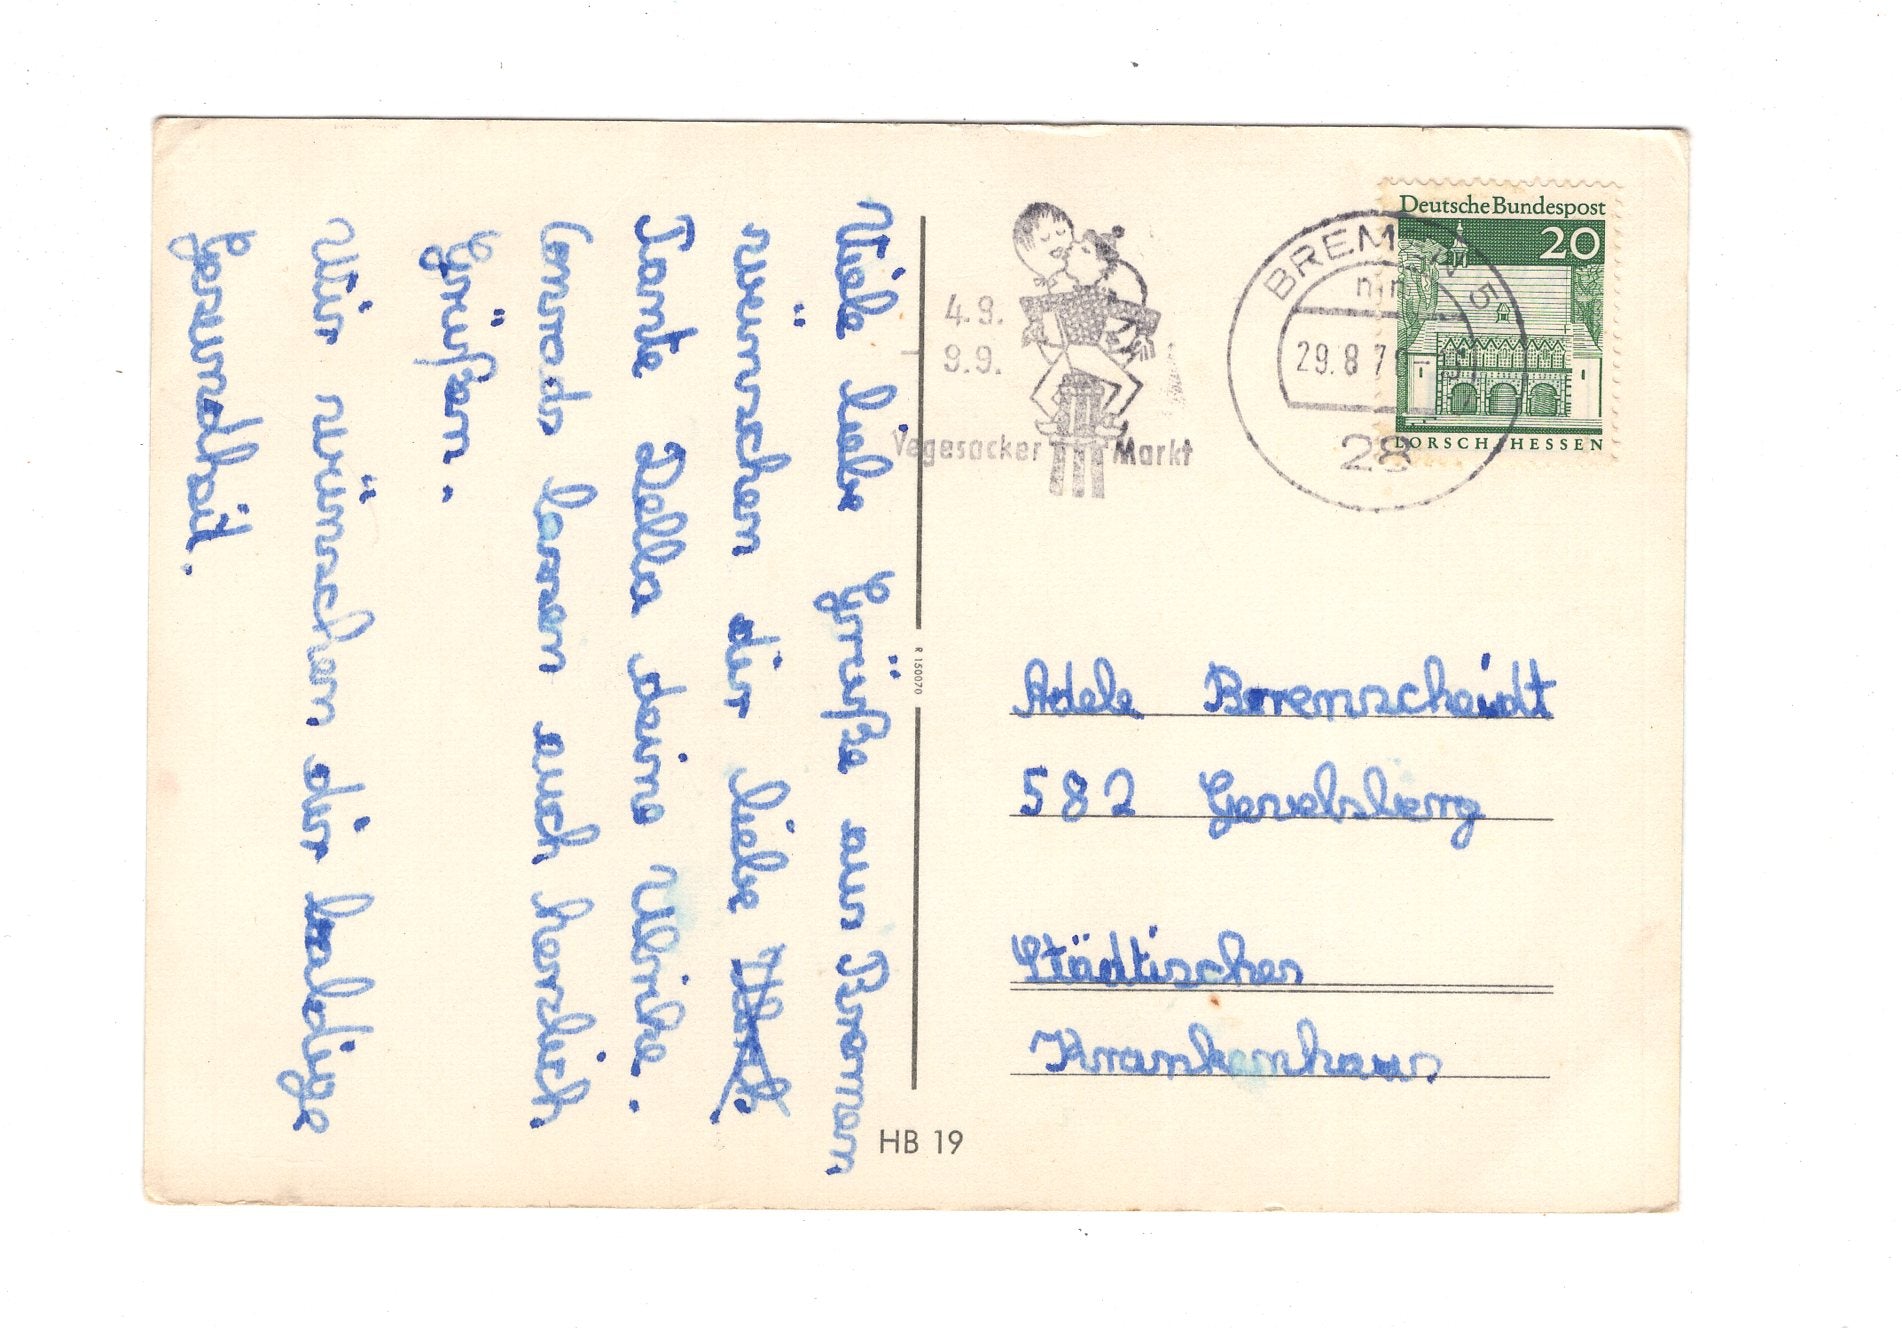 Viele liebe Grüße aus Bremen
wünschen dir liebe
Tante Della deine Ulrike.
lassen euch herzlich
Grüßen.
Wir wünschen dir baldige
Gesundheit.
R 150070
HB 19
4.9.
9.9.
Vegesacker Markt
BREMEN 5
29.8.70
28
Deutsche Bundespost
20
LORSCH/HESSEN
Adele Brenscheidt
582 Gevelsberg
Städtisches
Krankenhaus